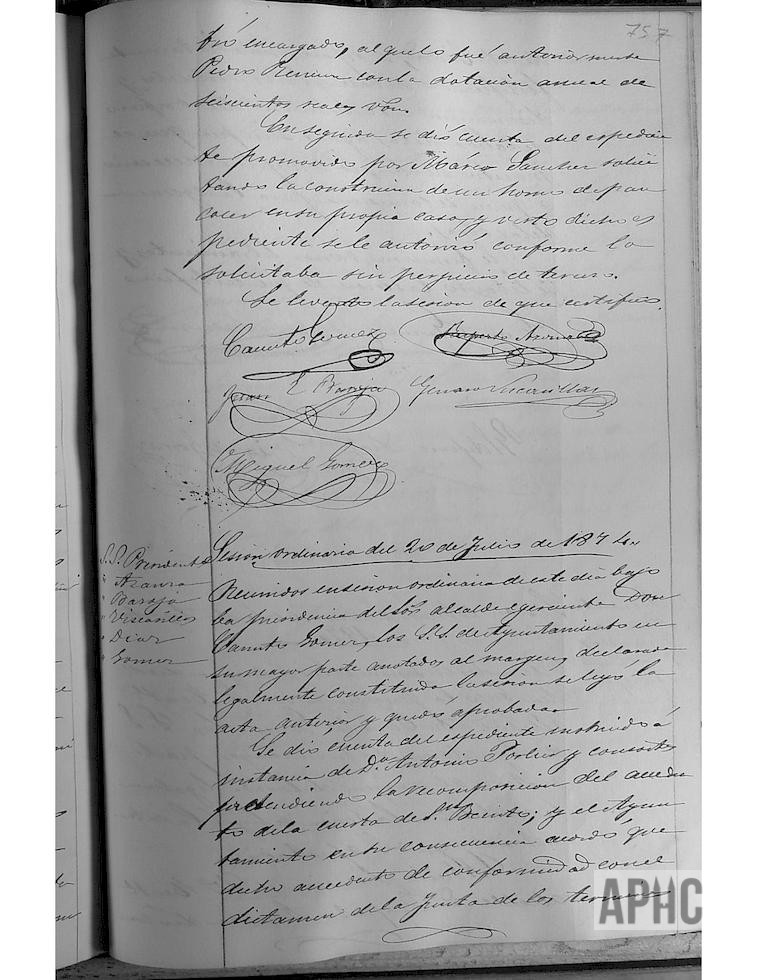 757
bró encargado, al que lo fué anteriormente
Pedro con la dotacion anual de
seiscientos reales vón.
En seguida se dió cuenta del espedien
te promovido por Mário Sanchez solici
tando la construccion de un horno de pan
cocer en su propia casa, y visto dicho es
pediente se le autorizó conforme lo
solicitaba sin perjuicio de tercero.
Se levantó la sesion de que certifico.
Canuto Gomez Ruperto
Juan E Baroja Genaro
Miguel Gomez
Sesion ordinaria del 20 de Julio de 1874
S.S. Presidente
" Baroja
" Diaz
" Gomez
Reunidos en sesion ordinaria de este dia bajo
la presidencia del Sór. alcalde ejerciente Don
Canuto Gomez, los S.S. de Ayuntamiento en
su mayor parte anotados al margen, declarada
legalmente constituida la sesion se leyó la
acta anterior y quedó aprobada.
Se dió cuenta del espediente instruido á
instancia de Dn. Antonio Porlier y consortes
pretendiendo la recomposicion del acueduc
to de la cuesta de Sn. Benito; y el Ayun
tamiento en su consecuencia acordó que
dicho acueducto de conformidad con el
dictamen de la Junta de los
APHC